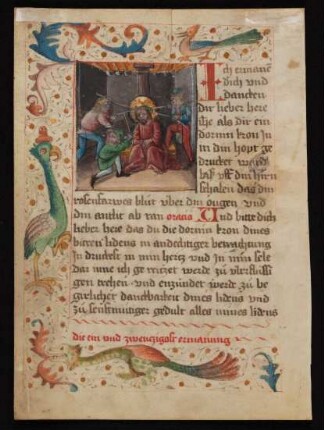 Ich ermane
dich und
dancken
dir lieber here
als dir ein
dornin kron In
din hopt ge
drucket ward
das
rosenfarwes blut vber din ougen vnd
din antlit ab ran oracio Und bitte dich
lieber here das du die dornin kron dines
lidens in andechtiger betrachtung
In druckest in min hertz vnd In min sele
dar mitte ich ge reitzet werde zu
gen trehen vnd enzundet werde zu be
girlicher danckbarkeit dines lidens vnd
zu senfftmutiger gedult alles mines lidens
die ein vnd zwenczigost ermanung